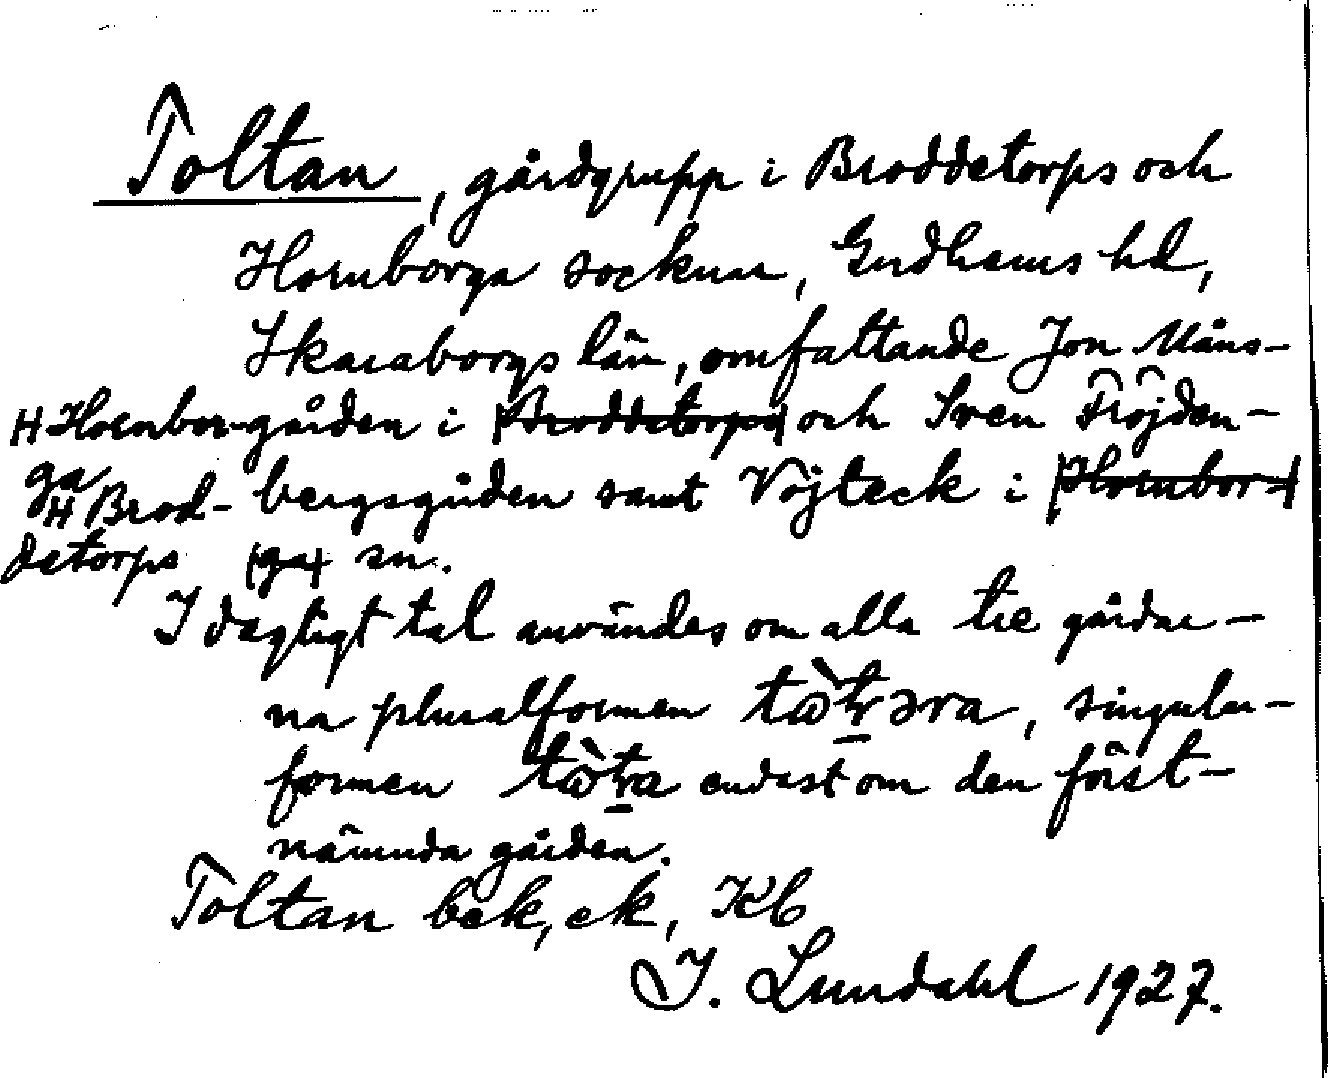 Toltan, gårdgrupp i Broddetorps och
Hornborga socknar, Gudhems hd,
Skaraborgs län, omfattande Jon Måns-
H Hornbor- gården i Broddetorps och Sven Fröjden-
ga
H Brod- bergsgården samt Vöjteck i Hornbor-
detorps ga sn.
I dagligt tal användes om alla tre gårdar-
na pluralformen, singular-
formen endast om den först-
nämnda gården.
Toltan bek, ek, Kb
I. Lundahl 1927.